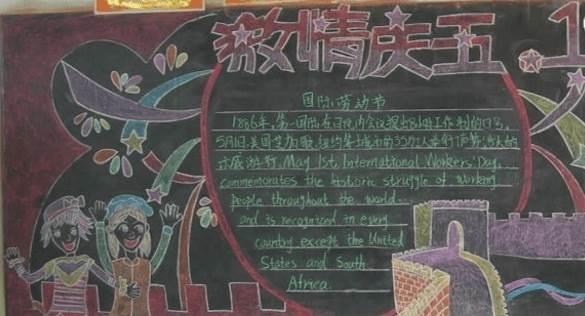 激情庆五.1
国际劳动节
1886年,第一国际在日内瓦会议提出8小时工作制的口号。
5月1日,美国芝加哥、纽约等城市的35万人举行声势浩大的
示威游行. May 1st, International Workers' Day,
commemorates the historic struggle of working
people throughout the world
and is recognized in every
country except the United
States and South
Africa.